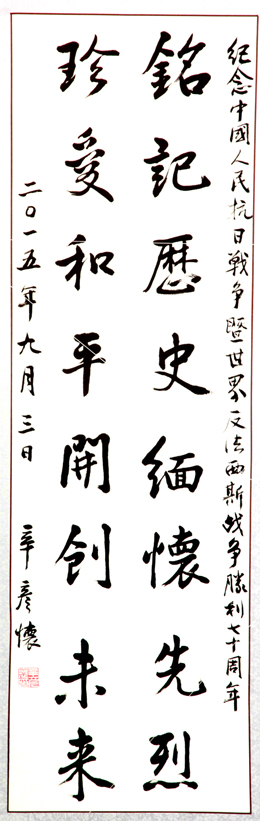 紀念中國人民抗日戰爭暨世界反法西斯战争勝利七十周年
銘記歷史緬懷先烈
珍愛和平開創未来
二〇一五年九月三日 辛彦懷